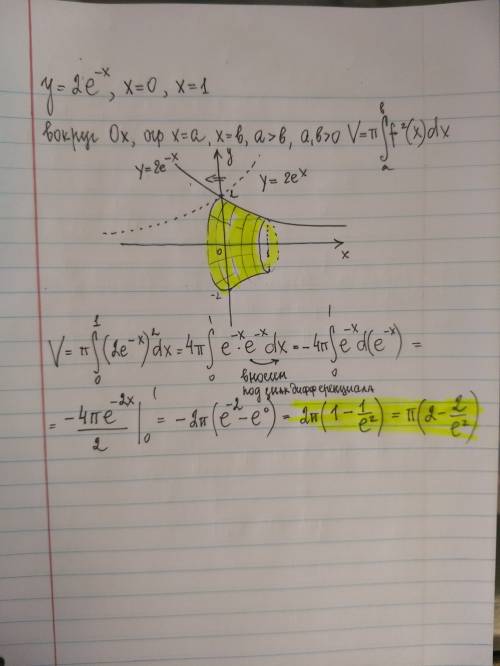 y=2e^{-x}, x=0, x=1
вокруг Ox, огр x=a, x=b, a>b, a,b>0 V=π∫_a^b f²(x)dx
y=2e^{-x}
y
y=2e^x
2
0
x
-2
V=π∫_0^1(2e^{-x})²dx=4π∫_0^1 e^{-x}·e^{-x}dx=-4π∫_0^1 e^{-x}d(e^{-x})=
вносим
под знак дифференциала
=\frac{-4πe^{-2x}}{2}|_0^1=-2π(e^{-2}-e^0)=2π(1-\frac{1}{e²})=π(2-\frac{2}{e²})